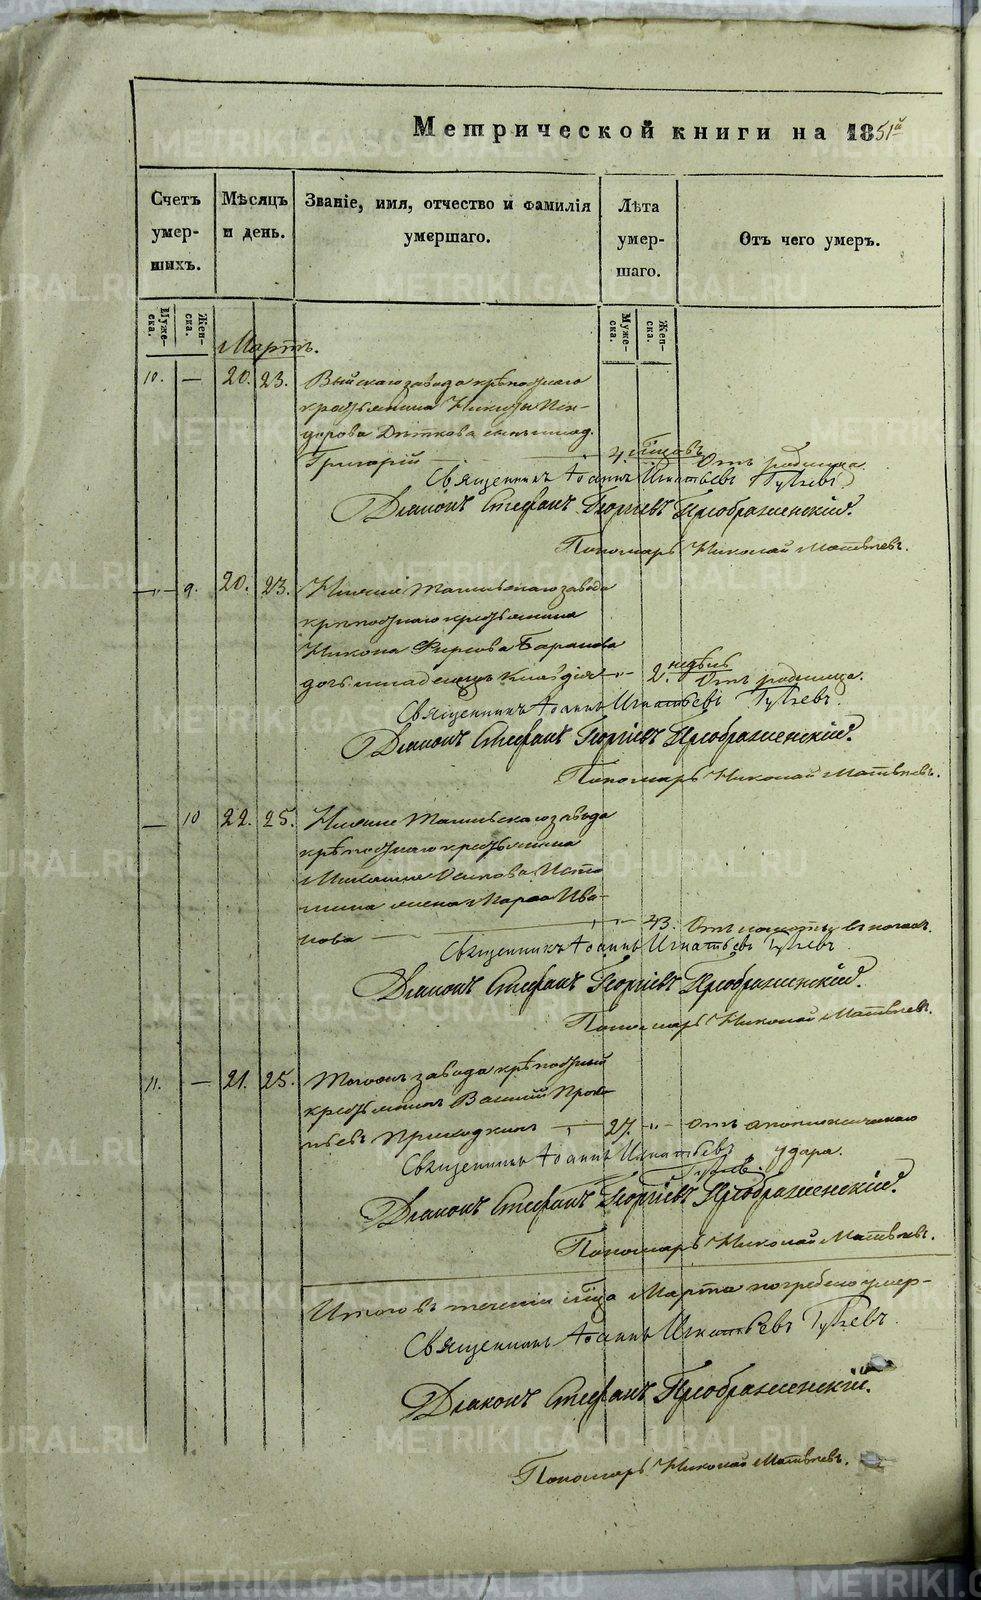 Метрической книги на 1851й
Счетъ умер-шихъ.
Мѣсяцъ и день.
Званіе, имя, отчество и фамилія умершаго.
Лѣта умер-шаго.
Отъ чего умеръ.
Муже-ска.
Жен-ска.
Муже-ска.
Жен-ска.
Мартъ.
10. — 20. 23. Выйскаго завода крѣпостнаго
крестьянина Никиты
сынъ млад.
Григорій — 4. Отъ родимца.
Священникъ Іоаннъ Игнатьевъ
Діаконъ Стефанъ Георгіевъ Преображенскій.
Пономарь Николай Матвѣевъ.
— " — 9. 20. 23. Нижне Тагильскаго завода
крѣпостнаго крестьянина
Никона Фирсова Баранова
дочь младенецъ Клавдія — " — 2. недѣль Отъ родимца.
Священникъ Іоаннъ Игнатьевъ
Діаконъ Стефанъ Георгіевъ Преображенскій.
Пономарь Николай Матвѣевъ.
— 10 22. 25. Нижне Тагильскаго завода
крѣпостнаго крестьянина
Осипова Исто
мина жена Марѳа Ива-
нова — " — 43. Отъ ломоты въ ногахъ.
Священникъ Іоаннъ Игнатьевъ
Діаконъ Стефанъ Георгіевъ Преображенскій.
Пономарь Николай Матвѣевъ.
11. — 21. 25. Тогожъ завода крѣпостный
крестьянинъ Василій
— 27. — " — Отъ апоплексическаго
удара.
Священникъ Іоаннъ Игнатьевъ
Діаконъ Стефанъ Георгіевъ Преображенскій.
Пономарь Николай Матвѣевъ.
Итого въ теченіи м͠ца Марта погребено умер-
Священникъ Іоаннъ Игнатьевъ
Діаконъ Стефанъ Преображенскій.
Пономарь Николай Матвѣевъ.
METRIKI.GASO-URAL.RU